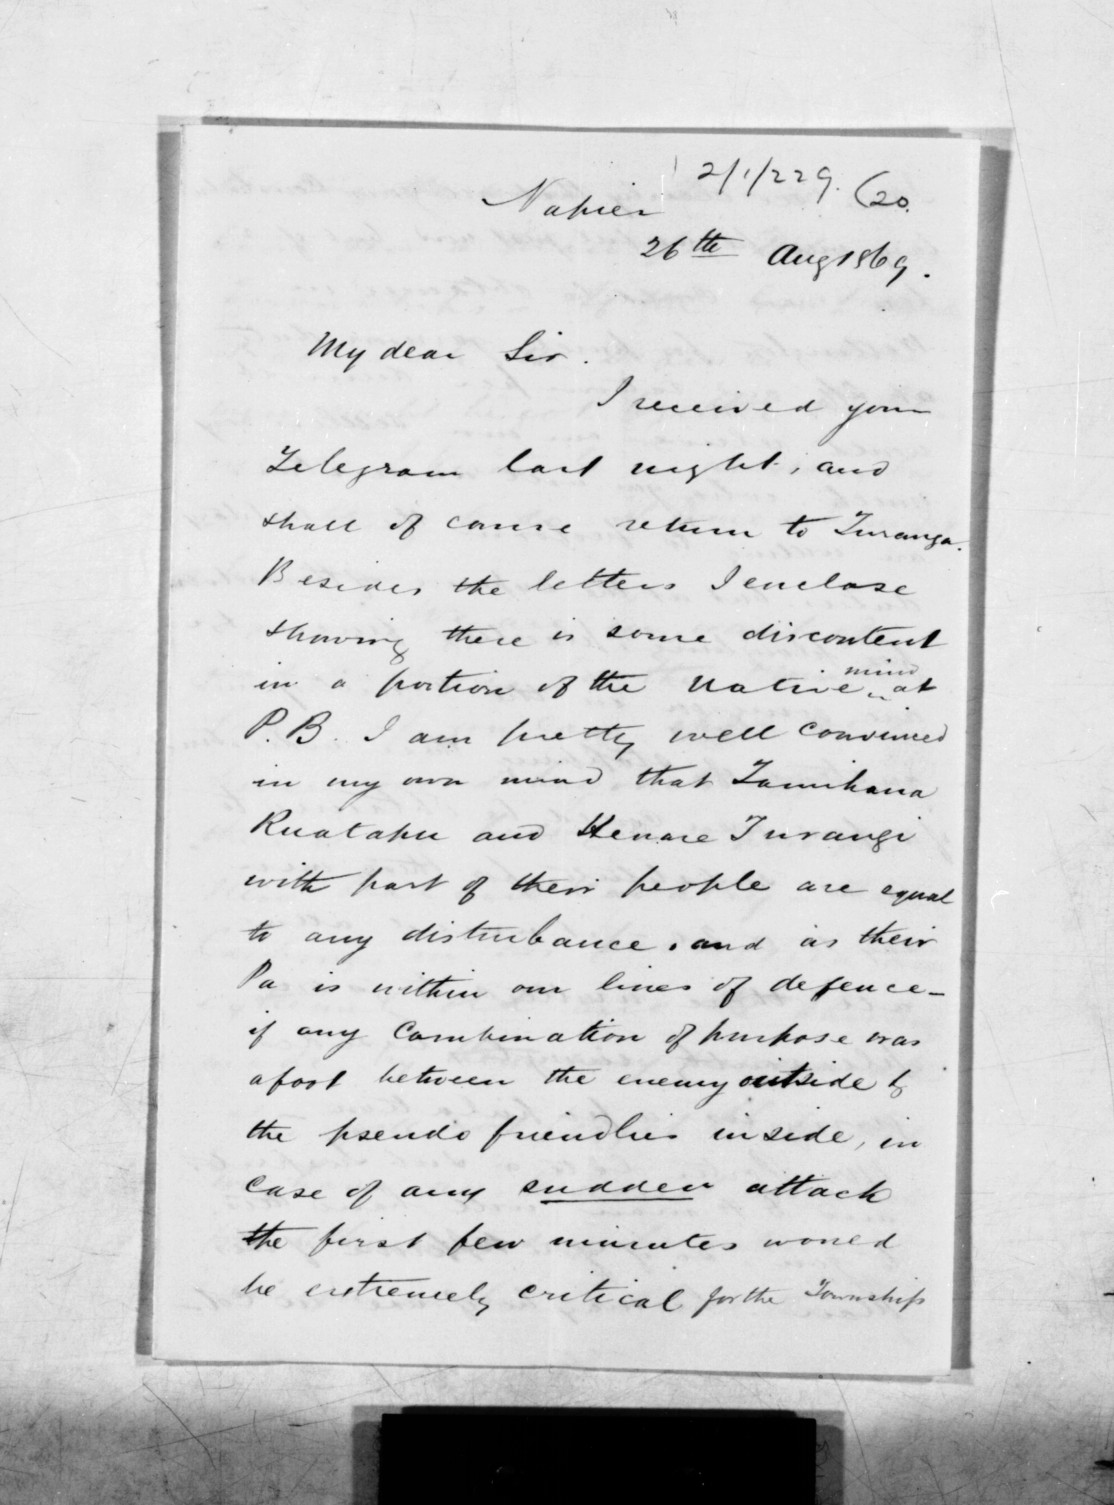 2/1/229. (20.
Napier
26th Aug 1869.
My dear Sir.
I received your
Telegram last night, and
shall of course return to Turanga.
Besides the letters I enclose
showing there is some discontent
in a portion of the Native mind at
P.B. I am pretty well convinced
in my own mind that Tamihana
Ruatapu and Henare Turangi
with part of their people are equal
to any disturbance. and as their
Pa is within our lines of defence -
if any Combination of purpose was
afoot between the enemy outside &
the pseudo friendlies inside, in
case of any sudden attack
the first few minutes would
be extremely critical for the Township